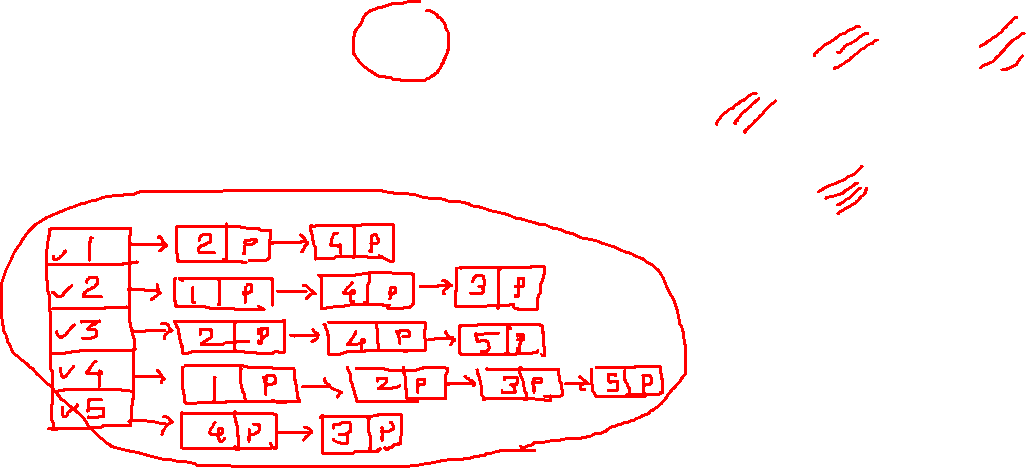 ✓1 → 2 P → 4 P
✓2 → 1 P → 4 P → 3 P
✓3 → 2 P → 4 P → 5 P
✓4 → 1 P → 2 P → 3 P → 5 P
✓5 → 4 P → 3 P